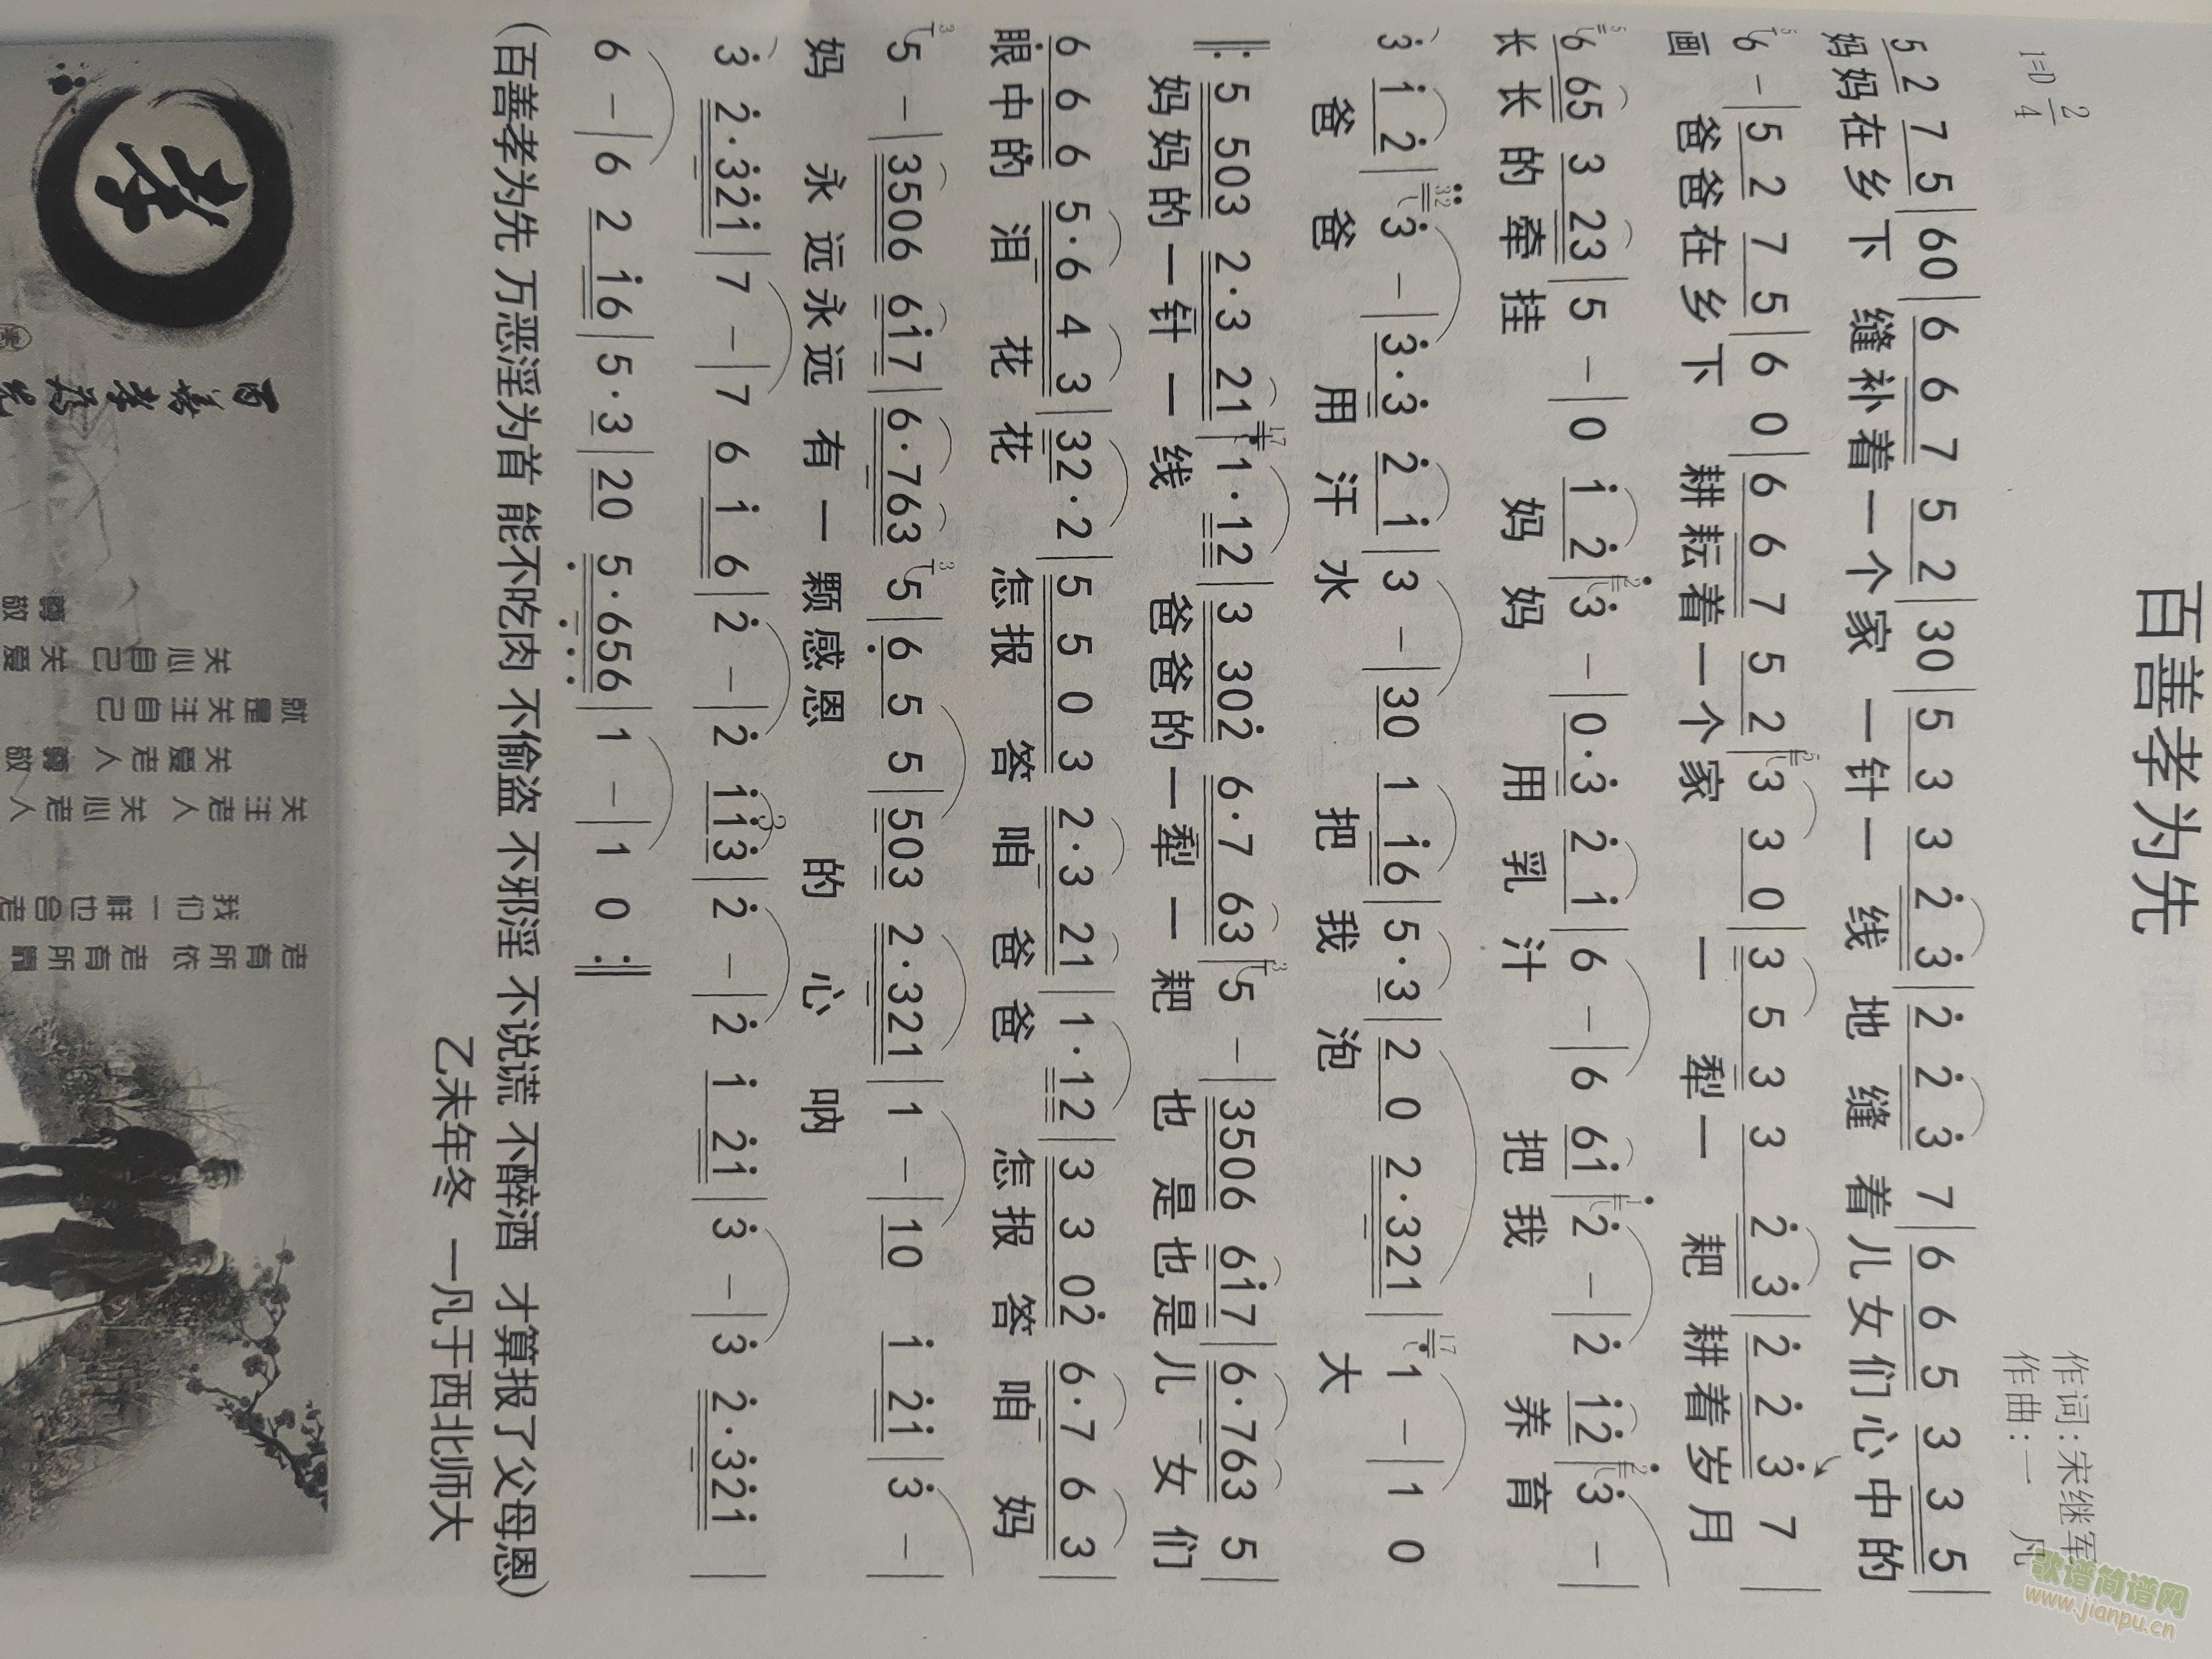 百善孝为先
作词：宋继军
1=D 2/4
作曲：一 凡
5 2 7 5 | 60 | 6 6 7 5 2 | 30 | 5 3 3 2̇ 3̇ | 2̇ 2̇ 3̇ 7 | 6 6 5 3 3 5 |
妈妈在乡下 缝补着一个家 一针一 线 地 缝 着儿女们心中的
6 - | 5 2 7 5 | 6 0 | 6 6 7 5 2 | 3 3 0 | 3 5 3 3 2̇ 3̇ | 2̇ 2̇ 3̇ 7 |
画 爸爸在乡下 耕耘着一个家 一 犁一 耙 耕着岁月
6 65 3 23 | 5 - | 0 1̇ 2̇ | 3̇ - | 0·3̇ 2̇ 1̇ | 6 - | 6 61̇ | 2̇ - | 2̇ 1̇2̇ | 3̇ - |
长长的牵挂 妈妈 用乳汁 把我 养育
3̇ 1̇ 2̇ | 3̇ - | 3̇·3̇ 2̇ 1̇ | 3 - | 30 1 1̇6 | 5·3 | 2 0 2·321 | 1 - | 1 0
爸爸 用汗水 把我泡 大
‖: 5 503 2·3 21 | 1·12 | 3 302̇ 6·7 63 | 5 - | 3506 61̇7 | 6·763 5 |
妈妈的一针一线 爸爸的一犁一耙 也是也是儿女们
6 6 6 5·6 4 3 | 32·2 | 5 5 0 3 2·3 21 | 1·12 | 3 3 02̇ 6·7 6 3 |
眼中的泪花花 怎报答咱爸爸 怎报答咱妈
5 - | 3506 61̇7 | 6·763 5 | 6̣ 5 5 | 503 2·321 | 1 - | 10 1̇ 2̇1̇ | 3̇ - |
妈 永远永远有一颗感恩 的心呐
3̇ 2̇·3̇2̇1̇ | 7 - | 7 6 1̇ 6 | 2̇ - | 2̇ 1̇1̇3̇ | 2̇ - | 2̇ 1̇ 2̇1̇ | 3̇ - | 3̇ 2̇·3̇2̇1̇ |
6 - | 6 2 1̇6 | 5·3 | 20 5̣·6̣5̣6̣ | 1 - | 1 0 :‖
(百善孝为先 万恶淫为首 能不吃肉 不偷盗 不邪淫 不说谎 不醉酒 才算报了父母恩)
乙未年冬 一凡于西北师大
孝
百善孝为先
老有所依 老有所靠
我们一样也会老
关注老人 关心老人
关爱老人 尊敬
就是关注自己
关心自己 关爱
尊敬
歌谱简谱网
www.jianpu.cn